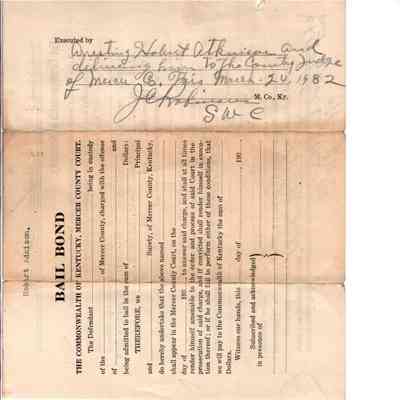 Executed by
Arresting Hobert Atkinson and
delivering him to The County Judge
of Mercer Co. This March-24, 1932
M. Co., Ky.
S M C
Hobert Adkinson,
BAIL BOND
THE COMMONWEALTH OF KENTUCKY, MERCER COUNTY COURT.
The Defendant being in custody
of the of Mercer County, charged with the offense
of and
being admitted to bail in the sum of Dollars:
THEREFORE, we Principal
and Surety, of Mercer County, Kentucky,
do hereby undertake that the above named
shall appear in the Mercer County Court, on the
day of 193 to answer said charge, and shall at all times
render himself amenable to the order and process of said Court in the
prosecution of said charge, and if convicted shall render himself in execu-
tion thereof; or if he shall fail to perform either of these conditions, that
we will pay to the Commonwealth of Kentucky the sum of
Dollars.
Witness our hands, this day of 193
Subscribed and acknowledged
in presence of